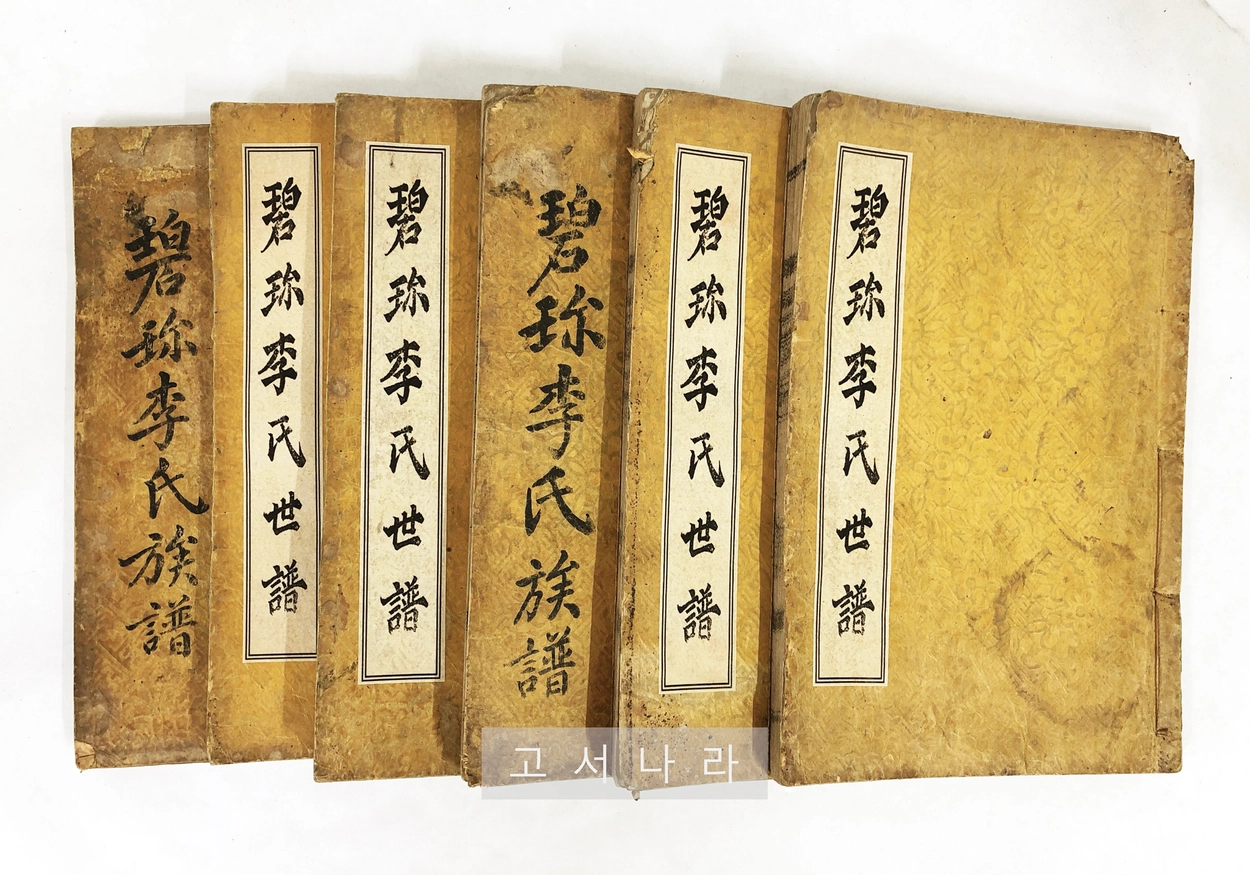 碧珎李氏族譜
碧珎李氏世譜
碧珎李氏世譜
碧珎李氏族譜
碧珎李氏世譜
碧珎李氏世譜
고서나라